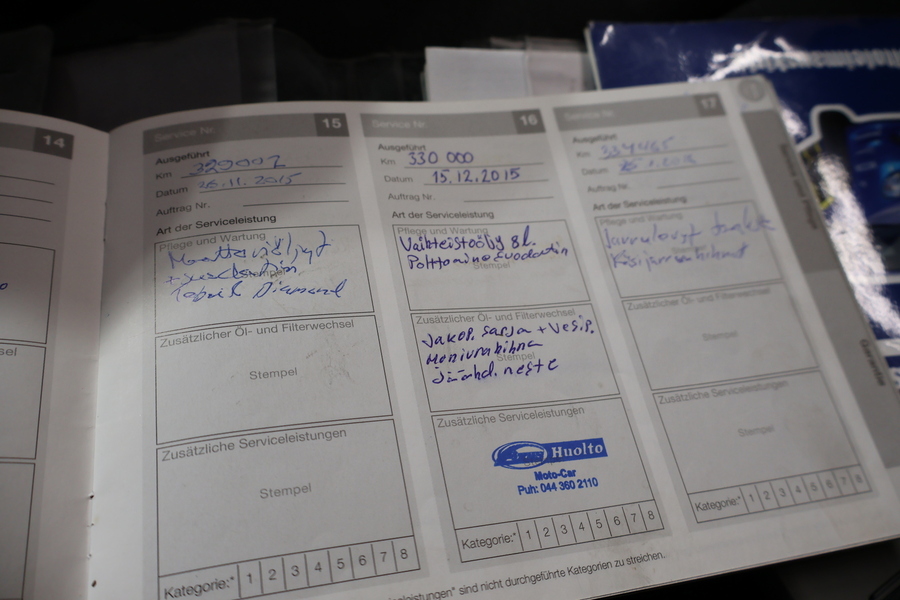 14
Service Nr.
15
Ausgeführt
Km 329002
Datum 26.11.2015
Auftrag Nr.
Art der Serviceleistung
Pflege und Wartung
Stempel
Diamand
Zusätzlicher Öl- und Filterwechsel
Stempel
Zusätzliche Serviceleistungen
Stempel
Kategorie:* 1 2 3 4 5 6 7 8
Service Nr.
16
Ausgeführt
Km 330 000
Datum 15.12.2015
Auftrag Nr.
Art der Serviceleistung
Pflege und Wartung
Vaihteistoöljy 8l.
Polttoainesuodatin
Stempel
Zusätzlicher Öl- und Filterwechsel
Jakop. sarja + Vesip.
Moniurahihna
Stempel
Jäähd. neste
Zusätzliche Serviceleistungen
Huolto
Moto-Car
Puh: 044 360 2110
Kategorie:* 1 2 3 4 5 6 7 8
Service Nr.
17
Ausgeführt
Km
Datum
Auftrag Nr.
Art der Serviceleistung
Pflege und Wartung
Käsijarrun hihnat
Zusätzlicher Öl- und Filterwechsel
Stempel
Zusätzliche Serviceleistungen
Stempel
Kategorie:* 1 2 3 4 5 6 7 8
sind nicht durchgeführte Kategorien zu streichen.